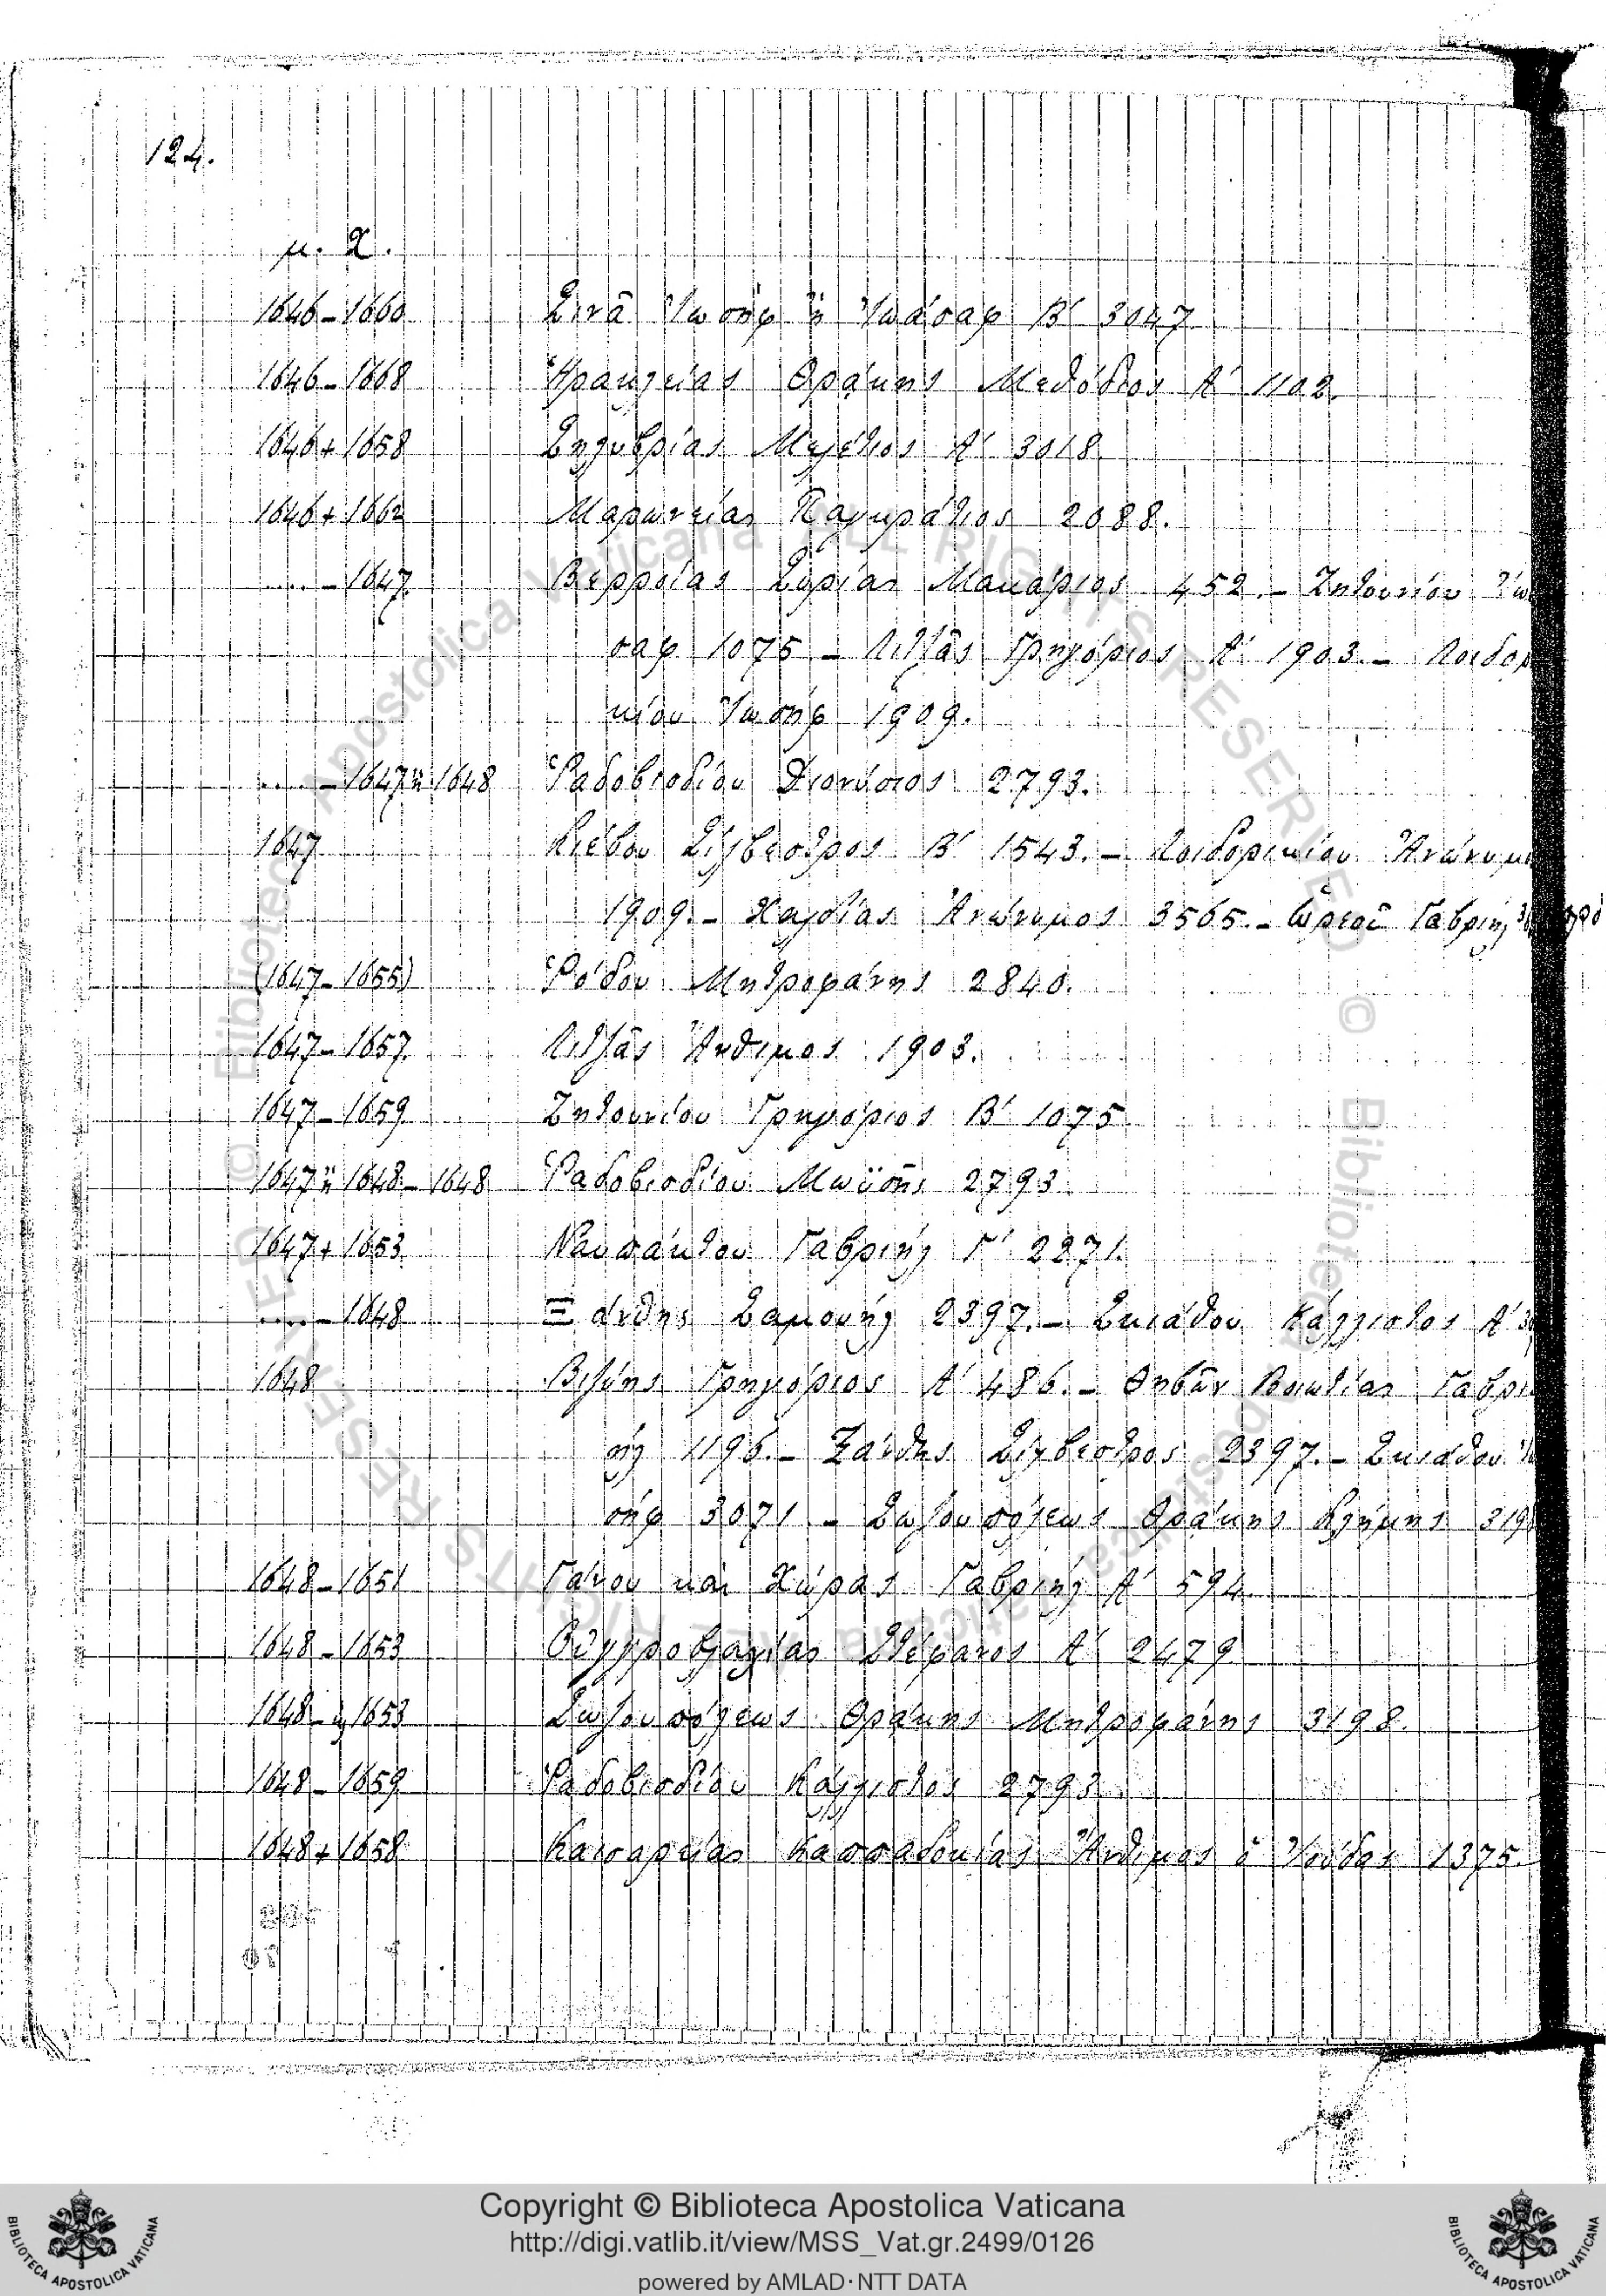 124.
μ. Χ.
1646-1660 Σινᾶ Ἰωσὴφ ἢ Ἰωάσαφ Β΄ 3047
1646-1668 Ἡρακλείας Θράκης Μεθόδιος Α΄ 1102.
1646+1658 Σηλυβρίας Μελέτιος Α΄ 3018.
1646+1662 Μαρωνείας Παγκράτιος 2088.
....-1647 Βερροίας Συρίας Μακάριος 452.- Ζητουνίου Ἰωά
σαφ 1075 - Λιτζᾶς Γρηγόριος Α΄ 1903.- Λοιδορι
κίου Ἰωσὴφ 1909.
....-1647 ἢ 1648 Ῥαδοβισδίου Διονύσιος 2793.
1647 Κιέβου Σίλβεστρος Β΄ 1543.- Λοιδορικίου Ἀνώνυμος
1909.- Χαλδίας Ἀνώνυμος 3565.- Ὠρεοῦ Γαβριὴλ
(1647-1655) Ῥόδου Μητροφάνης 2840.
1647-1657 Λιτζᾶς Ἄνθιμος 1903.
1647-1659 Ζητουνίου Γρηγόριος Β΄ 1075
1647 ἢ 1648-1648 Ῥαδοβισδίου Μωϋσῆς 2793
1647+1653 Ναυπάκτου Γαβριὴλ Γ΄ 2271.
....-1648 Ξάνθης Σαμουὴλ 2397.- Σκιάθου Κάλλιστος Α΄
1648 Βιζύης Γρηγόριος Α΄ 486.- Θηβῶν Βοιωτίας Γαβρι
ὴλ 1196.- Ξάνθης Σίλβεστρος 2397.- Σκιάθου Ἰω
σὴφ 3071 - Σωζουπόλεως Θράκης Κλήμης 3198
1648-1651 Γάνου καὶ Χώρας Γαβριὴλ Α΄ 594
1648-1653 Οὐγγροβλαχίας Στέφανος Α΄ 2479
1648-1653 Σωζουπόλεως Θράκης Μητροφάνης 3198.
1648-1659 Ῥαδοβισδίου Κάλλιστος 2793
1648+1658 Καισαρείας Καππαδοκίας Ἄνθιμος ὁ 1375.
Copyright © Biblioteca Apostolica Vaticana
http://digi.vatlib.it/view/MSS_Vat.gr.2499/0126
powered by AMLAD·NTT DATA